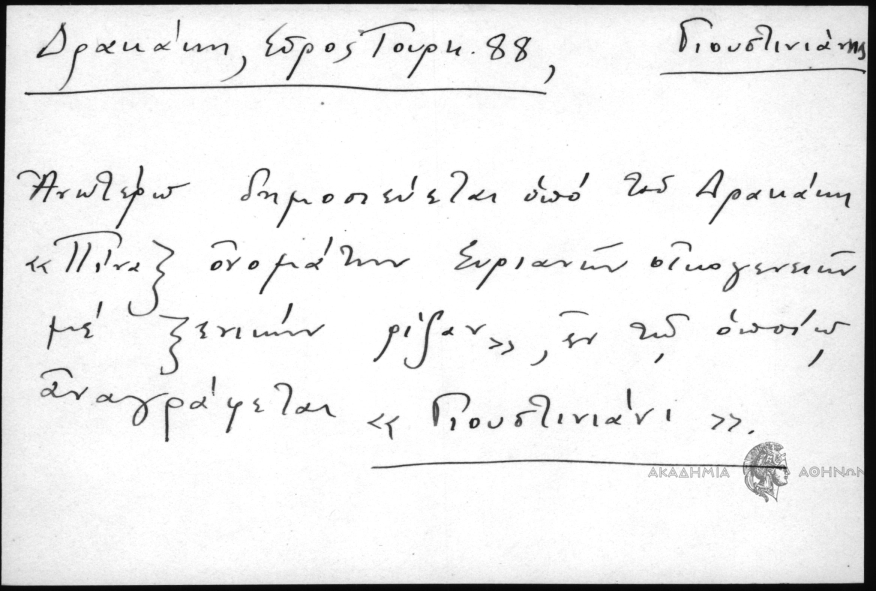 Δρακάκη, Σῦρος Τουρκ. 88, Γιουστινιάνης
Ἀνωτέρω δημοσιεύεται ὑπό τοῦ Δρακάκη
«Πίναξ ὀνομάτων Συριανῶν οἰκογενειῶν
μέ ξενικήν ρίζαν», ἐν τῷ ὁποίῳ
ἀναγράφεται «Γιουστινιάνι».
ΑΚΑΔΗΜΙΑ ΑΘΗΝΩΝ